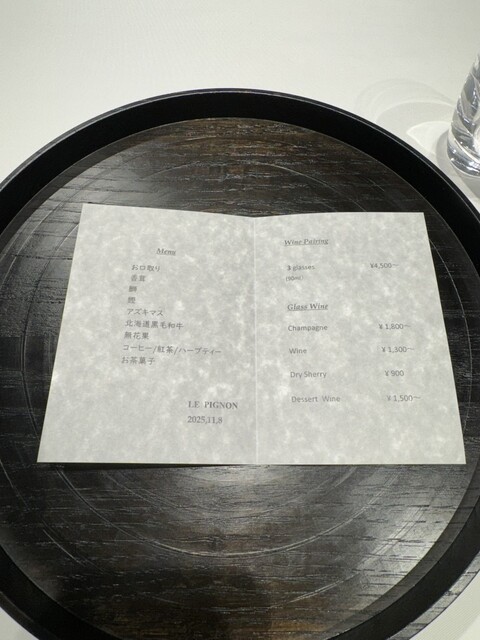 Menu
お口取り
香茸
アズキマス
北海道黒毛和牛
無花果
コーヒー/紅茶/ハーブティー
お茶菓子
LE PIGNON
2025,11,8
Wine Pairing
3 glasses ¥4,500～
(90ml)
Glass Wine
Champagne ¥1,800～
Wine ¥1,300～
Dry Sherry ¥900
Dessert Wine ¥1,500～